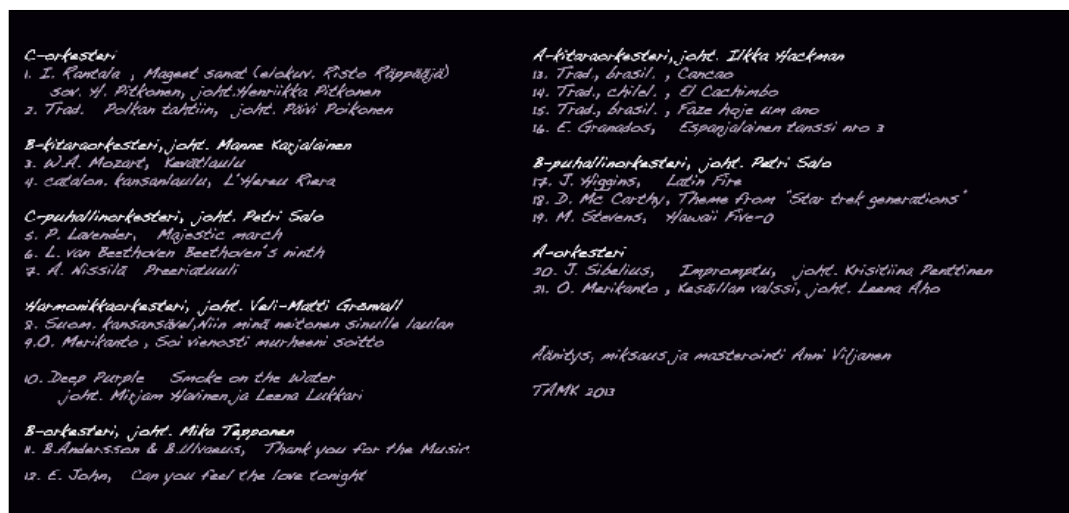 C-orkesteri
1. I. Rantala , Mageet sanat (elokuv. Risto Räppääjä)
sov. H. Pitkonen, joht.Henriikka Pitkonen
2. Trad. Polkan tahtiin, joht. Päivi Poikonen
B-kitaraorkesteri, joht. Manne Karjalainen
3. W.A. Mozart, Kevätlaulu
4. catalon. kansanlaulu, L'Hereu Riera
C-puhallinorkesteri, joht. Petri Salo
5. P. Lavender, Majestic march
6. L. van Beethoven Beethoven's ninth
7. A. Nissilä Preeriatuuli
Harmonikkaorkesteri, joht. Veli-Matti Grönvall
8. Suom. kansansävel,Niin minä neitonen sinulle laulan
9.O. Merikanto , Soi vienosti murheeni soitto
10. Deep Purple Smoke on the Water
joht. Mirjam Havinen ja Leena Lukkari
B-orkesteri, joht. Mika Tepponen
11. B.Andersson & B.Ulvaeus, Thank you for the Music
12. E. John, Can you feel the love tonight
A-kitaraorkesteri, joht. Ilkka Hackman
13. Trad., brasil. , Cancao
14. Trad., chilel. , El Cachimbo
15. Trad., brasil. , Faze hoje um ano
16. E. Granados, Espanjalainen tanssi nro 3
B-puhallinorkesteri, joht. Petri Salo
17. J. Higgins, Latin Fire
18. D. Mc Carthy, Theme from "Star trek generations"
19. M. Stevens, Hawaii Five-O
A-orkesteri
20. J. Sibelius, Impromptu, joht. Krisitiina Penttinen
21. O. Merikanto , Kesäillan valssi, joht. Leena Aho
Äänitys, miksaus ja masterointi Anni Viljanen
TAMK 2013